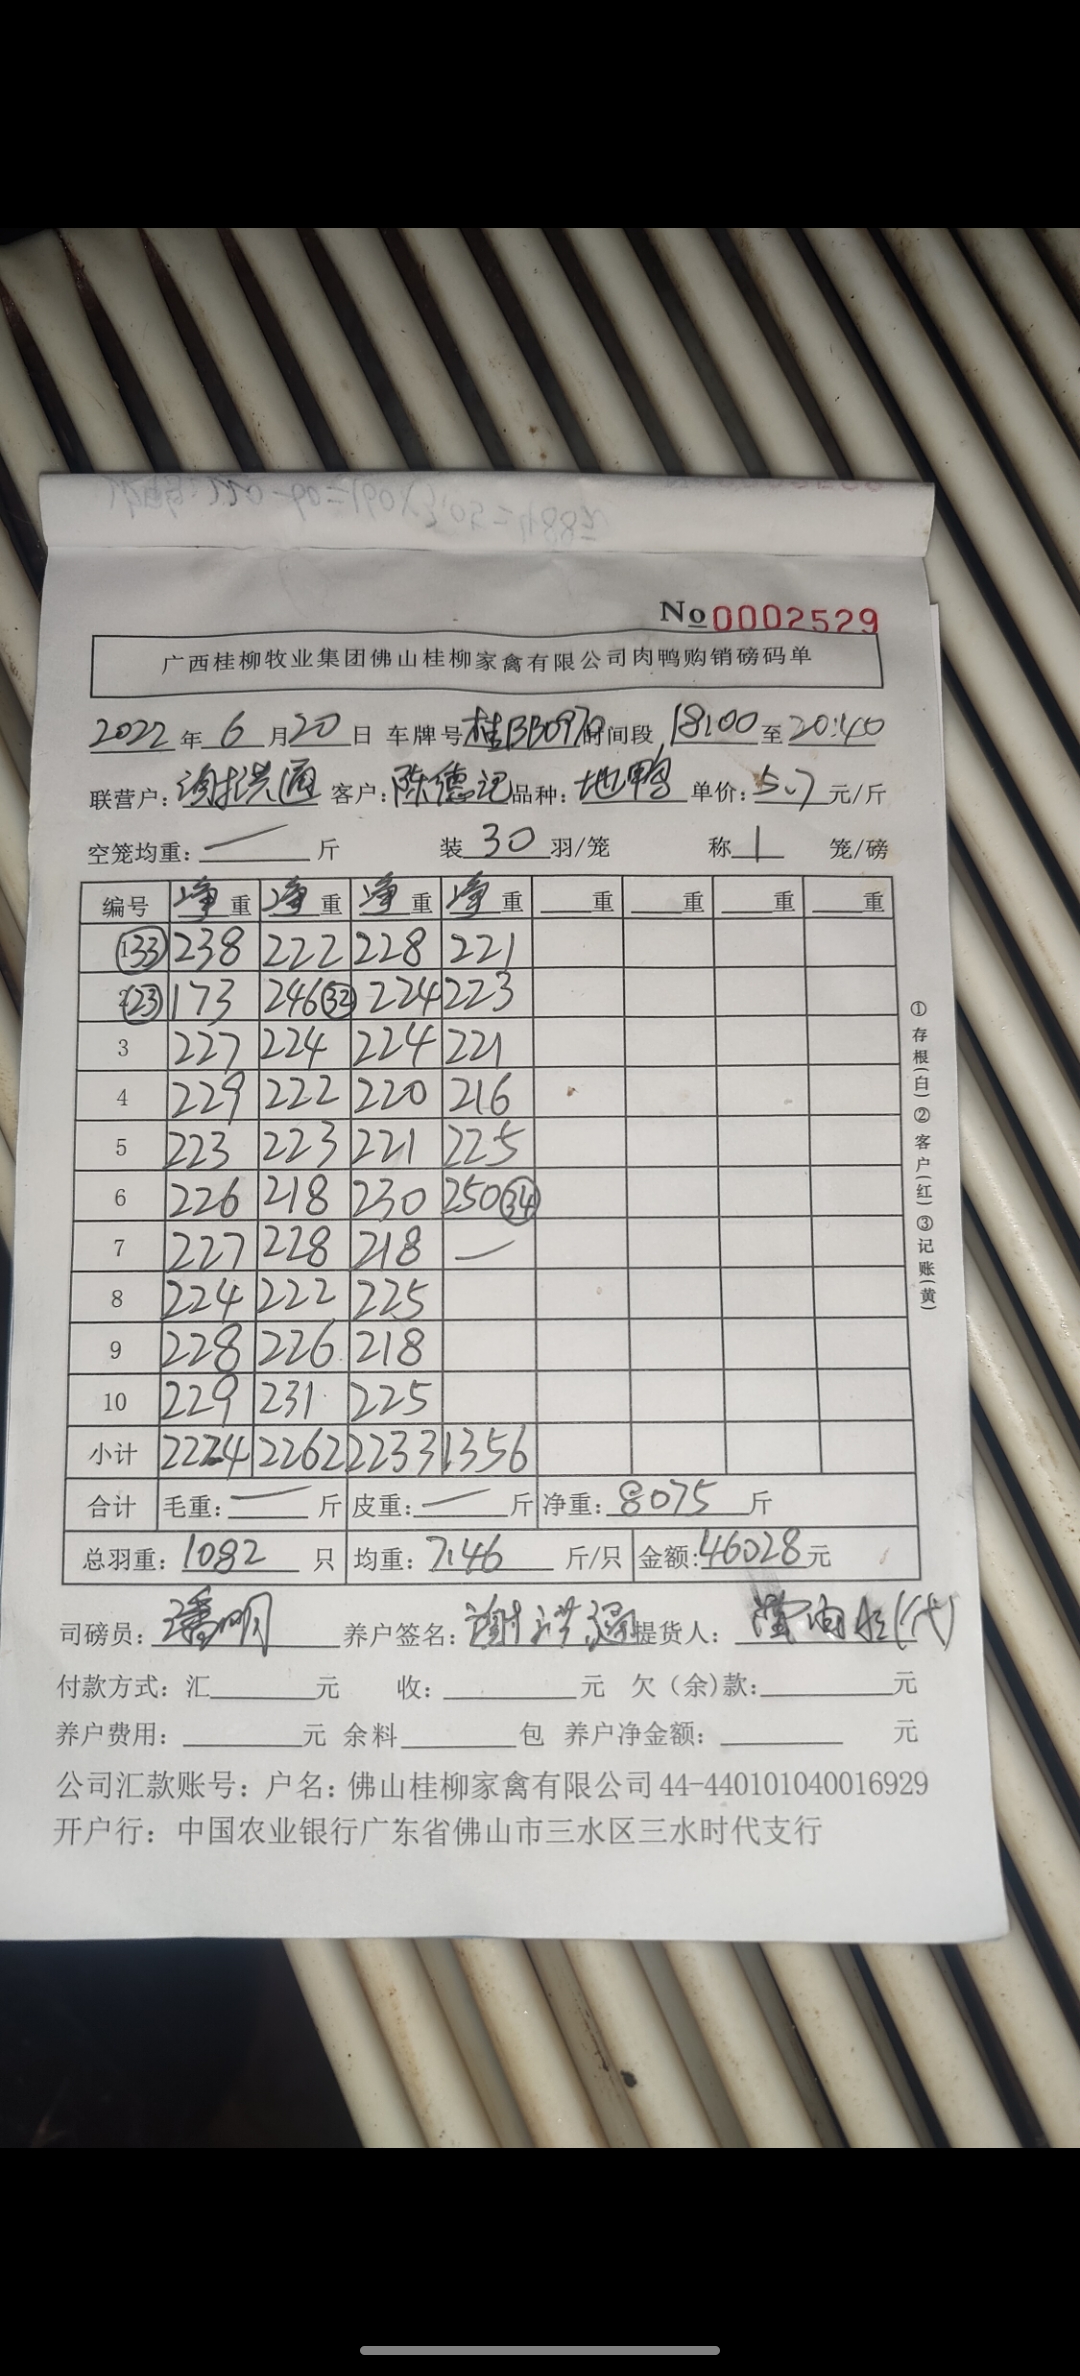 No 0002529
广西桂柳牧业集团佛山桂柳家禽有限公司肉鸭购销磅码单
2022年6月20日 车牌号桂BB0970时间段18:00至20:40
联营户: 谢洪通 客户: 陈德记 品种: 地鸭 单价: 5.7元/斤
空笼均重: — 斤 装30羽/笼 称1笼/磅
编号 净重 净重 净重 净重 重 重 重 重
1 (33) 238 222 228 221
2 (23) 173 246(32) 224 223
3 227 224 224 221
4 229 222 220 216
5 223 223 221 225
6 226 218 230 250(34)
7 227 228 218 —
8 224 222 225
9 228 226 218
10 229 231 225
小计 2224 2262 2233 1356
合计 毛重: — 斤 皮重: — 斤 净重: 8075斤
总羽重: 1082只 均重: 7.46斤/只 金额: 46028元
司磅员: 潘明 养户签名: 谢洪通 提货人: (代)
付款方式: 汇 元 收: 元 欠(余)款: 元
养户费用: 元 余料 包 养户净金额: 元
公司汇款账号: 户名: 佛山桂柳家禽有限公司 44-440101040016929
开户行: 中国农业银行广东省佛山市三水区三水时代支行
①存根(白)②客户(红)③记账(黄)